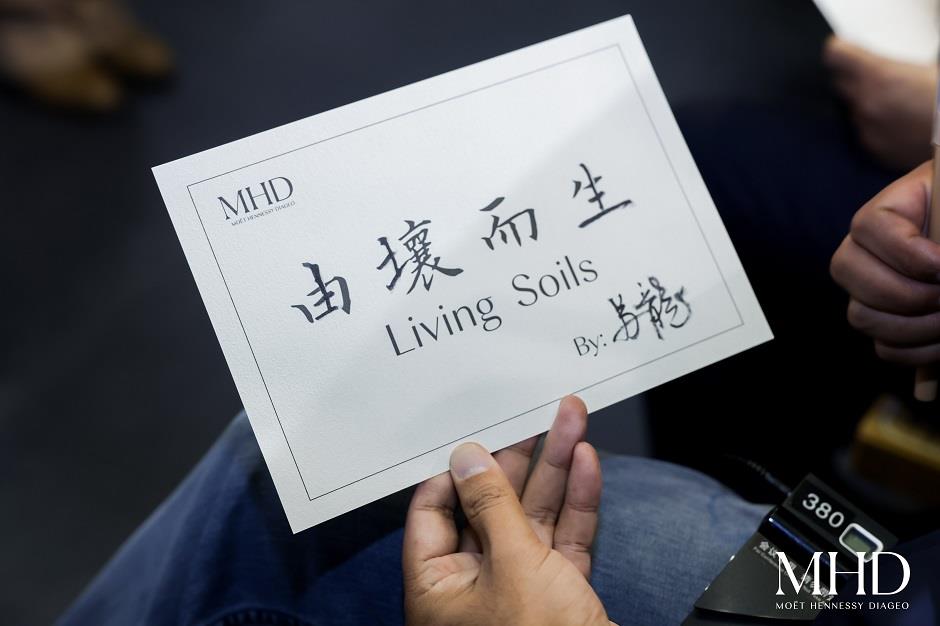 MHD
MOËT HENNESSY DIAGEO
由壤而生
Living Soils
By:
380
MHD
MOËT HENNESSY DIAGEO